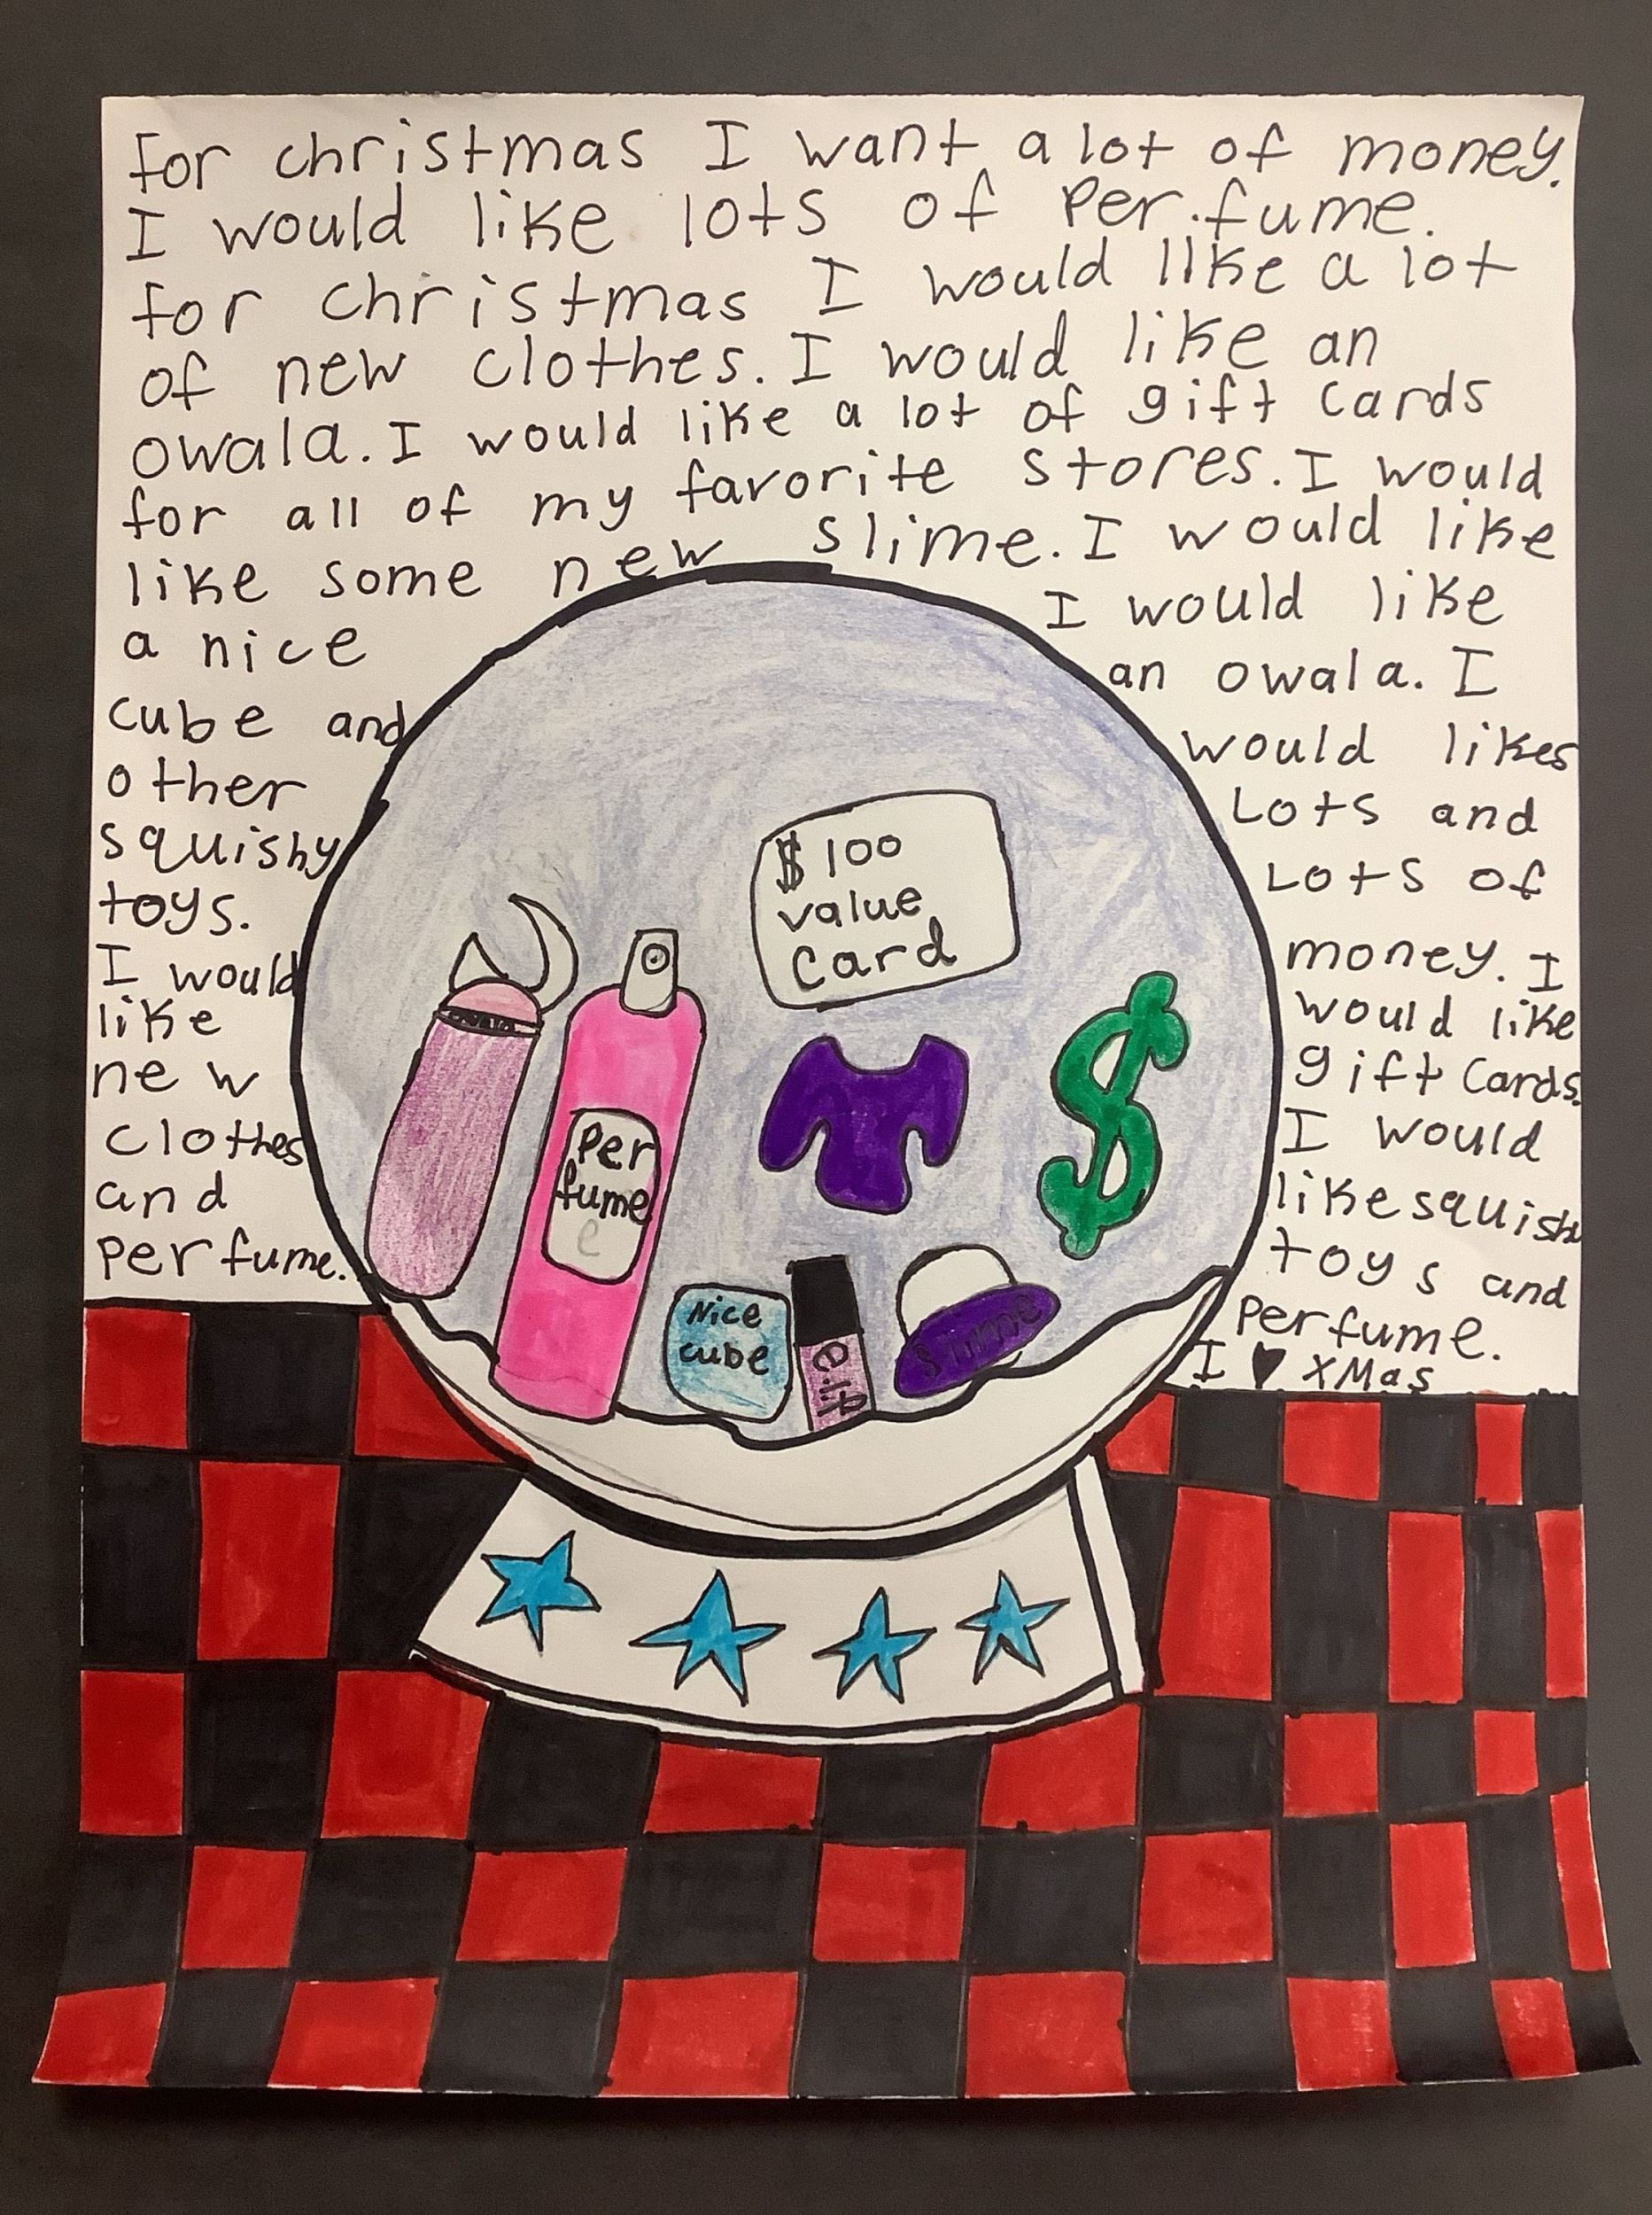 for christmas I want a lot of money.
I would like lots of Per.fume.
for christmas I would like a lot
of new clothes. I would like an
owala. I would like a lot of gift cards
for all of my favorite stores. I would
like some new slime. I would like
a nice
cube and
other
squishy
toys.
I would
like
new
clothes
and
perfume.
I would like
an owala. I
would likes
Lots and
Lots of
money. I
would like
gift Cards.
I would
like squishy
toys and
Perfume.
I ♥ XMas
$100
value
Card
owala
Per
fume
e
Nice
cube
e.l.f
Slime